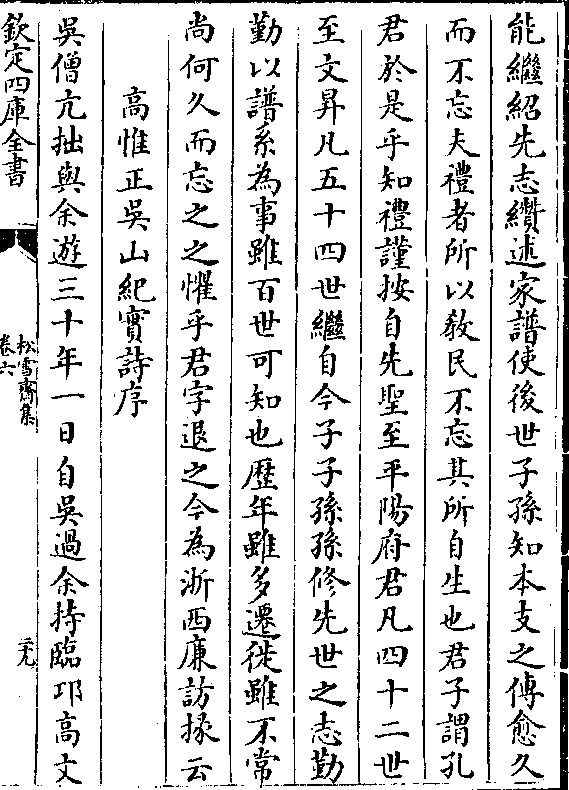 能繼紹先志纘述家譜使後世子孫知本支之傳愈久
而不忘夫禮者所以敎民不忘其所自生也君子謂孔
君於是乎知禮謹按自先聖至平陽府君凡四十二世
至文昇凡五十四世繼自今子子孫孫修先世之志勤
勤以譜系為事雖百世可知也歴年雖多遷徙雖不常
尚何久而忘之之懼乎君字退之今為浙西廉訪掾云
高惟正吳山紀實詩序
吳僧亢拙與余遊三十年一日自吳過余持臨邛高文
欽定四庫全書
松雪齋集
卷六
二九